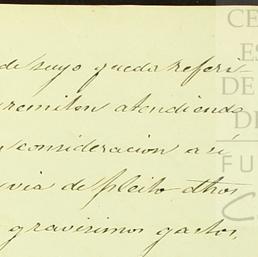 de suyo queda refers-
remiten atendiendo
consideracion a si
via de pleito dhos
gravisimos gastos,
CE
ES
DE
D
FU
C